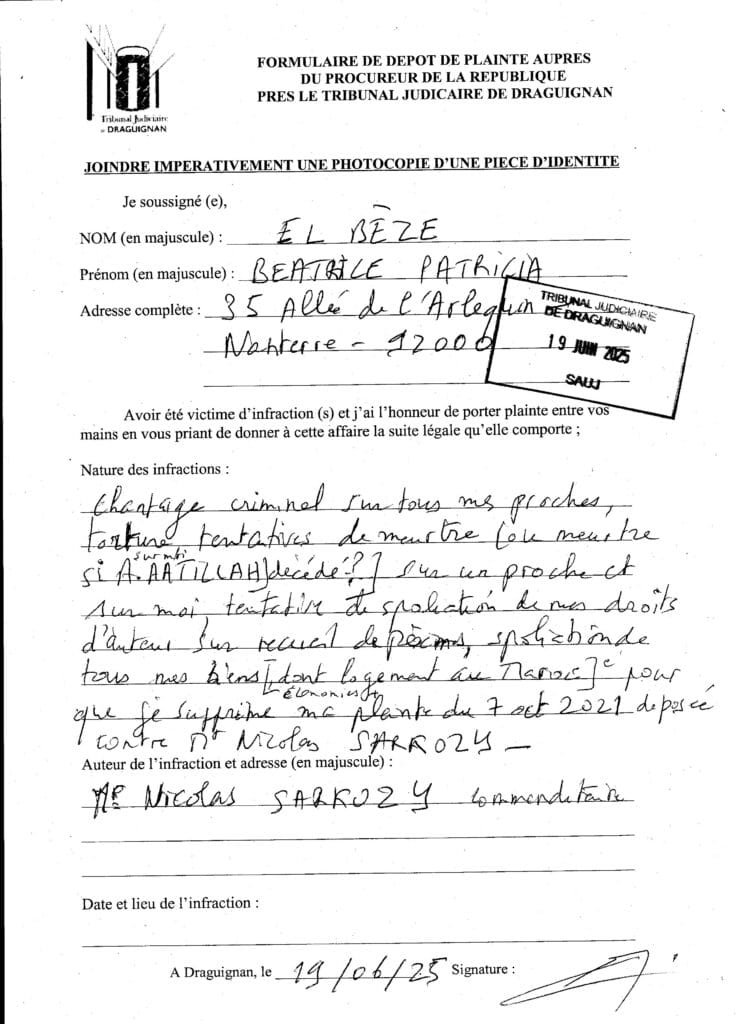 Tribunal Judiciaire
de DRAGUIGNAN
FORMULAIRE DE DEPOT DE PLAINTE AUPRES
DU PROCUREUR DE LA REPUBLIQUE
PRES LE TRIBUNAL JUDICAIRE DE DRAGUIGNAN
JOINDRE IMPERATIVEMENT UNE PHOTOCOPIE D'UNE PIECE D'IDENTITE
Je soussigné (e),
NOM (en majuscule) : EL BÈZE
Prénom (en majuscule) : BEATRICE PATRICIA
Adresse complète : 35 Allée de l'Arlequin
Nanterre - 92000
TRIBUNAL JUDICIAIRE
DE DRAGUIGNAN
19 JUIN 2025
SAUJ
Avoir été victime d'infraction (s) et j'ai l'honneur de porter plainte entre vos
mains en vous priant de donner à cette affaire la suite légale qu'elle comporte ;
Nature des infractions :
Chantage criminel sur tous mes proches,
torture tentatives de meurtre [ou meurtre
sur moi
si A. AATILLAH décédé ?] sur un proche et
sur moi, tentative de spoliation de mes droits
d'auteur sur recueil de poèmes, spoliation de
tous mes biens [dont logement au Maroc] pour
économies
que je supprime ma plainte du 7 oct 2021 déposée
contre Mr Nicolas SARKOZY -
Auteur de l'infraction et adresse (en majuscule) :
Mr Nicolas SARKOZY commenditaire
Date et lieu de l'infraction :
A Draguignan, le 19/06/25 Signature :